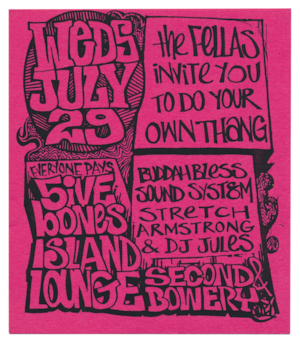 WEDS
JULY
29
the FELLAS
INVITE YOU
TO DO YOUR
OWN THANG
EVERYONE PAYS
5ive
bones
ISLAND
LOUNGE
BUDDAH BLESS
SOUND SYST8M
STRETCH
ARMSTRONG
& DJ JULES
SECOND &
BOWERY